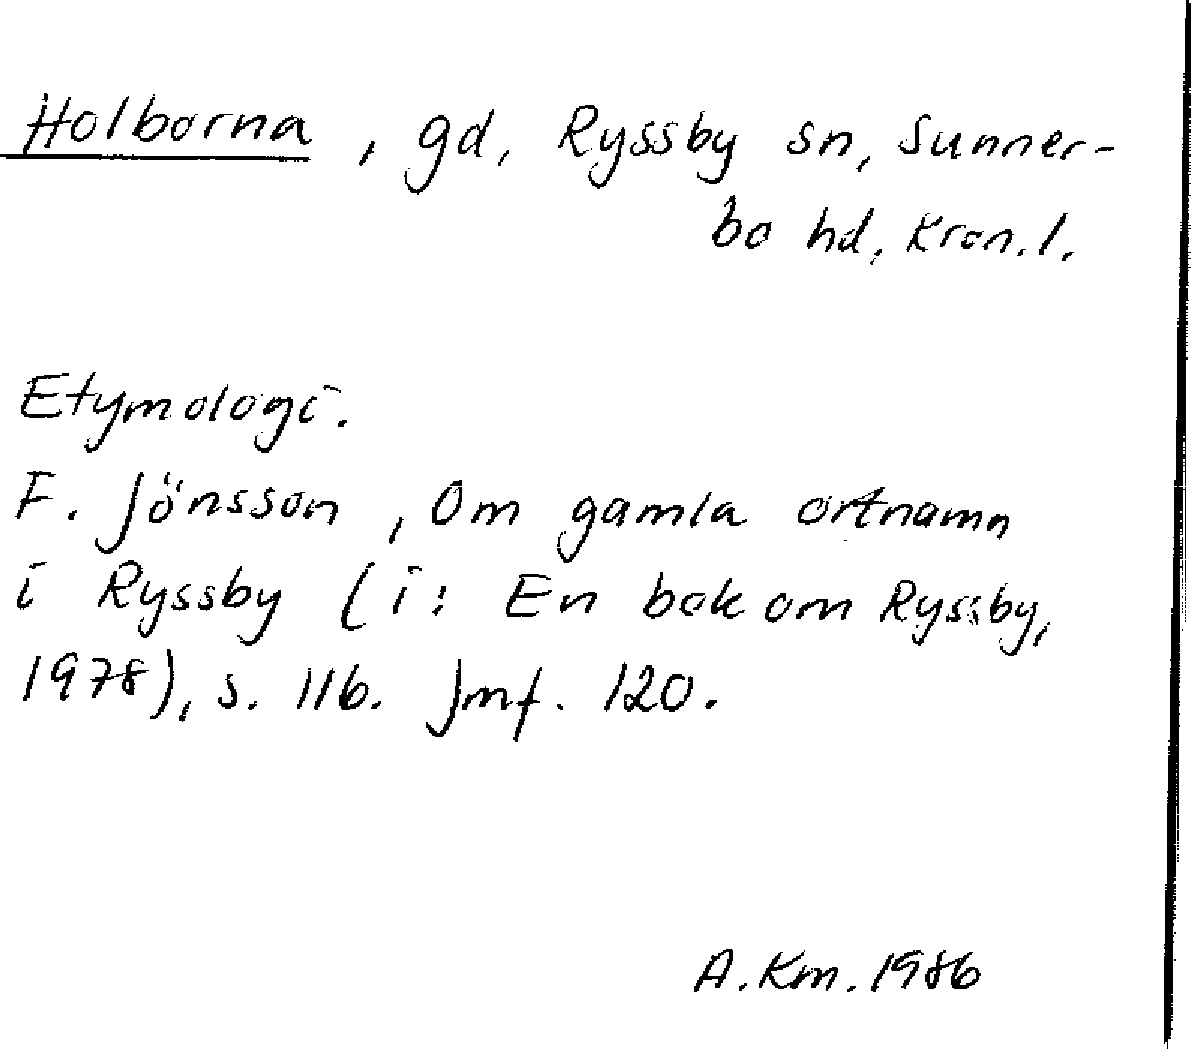 Holborna, gd, Ryssby sn, Sunner-
bo hd, Kron.l.
Etymologi.
F. Jönsson, Om gamla ortnamn
i Ryssby (i: En bok om Ryssby,
1978), s. 116. Jmf. 120.
A.Km.1986